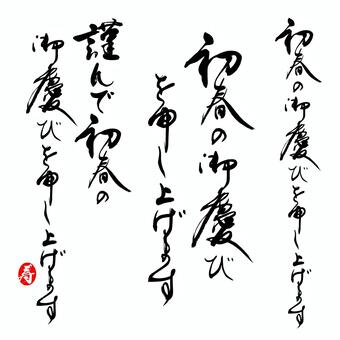 初春の御慶びを申し上げます
初春の御慶び
を申し上げます
謹んで初春の
御慶びを申し上げます
寿